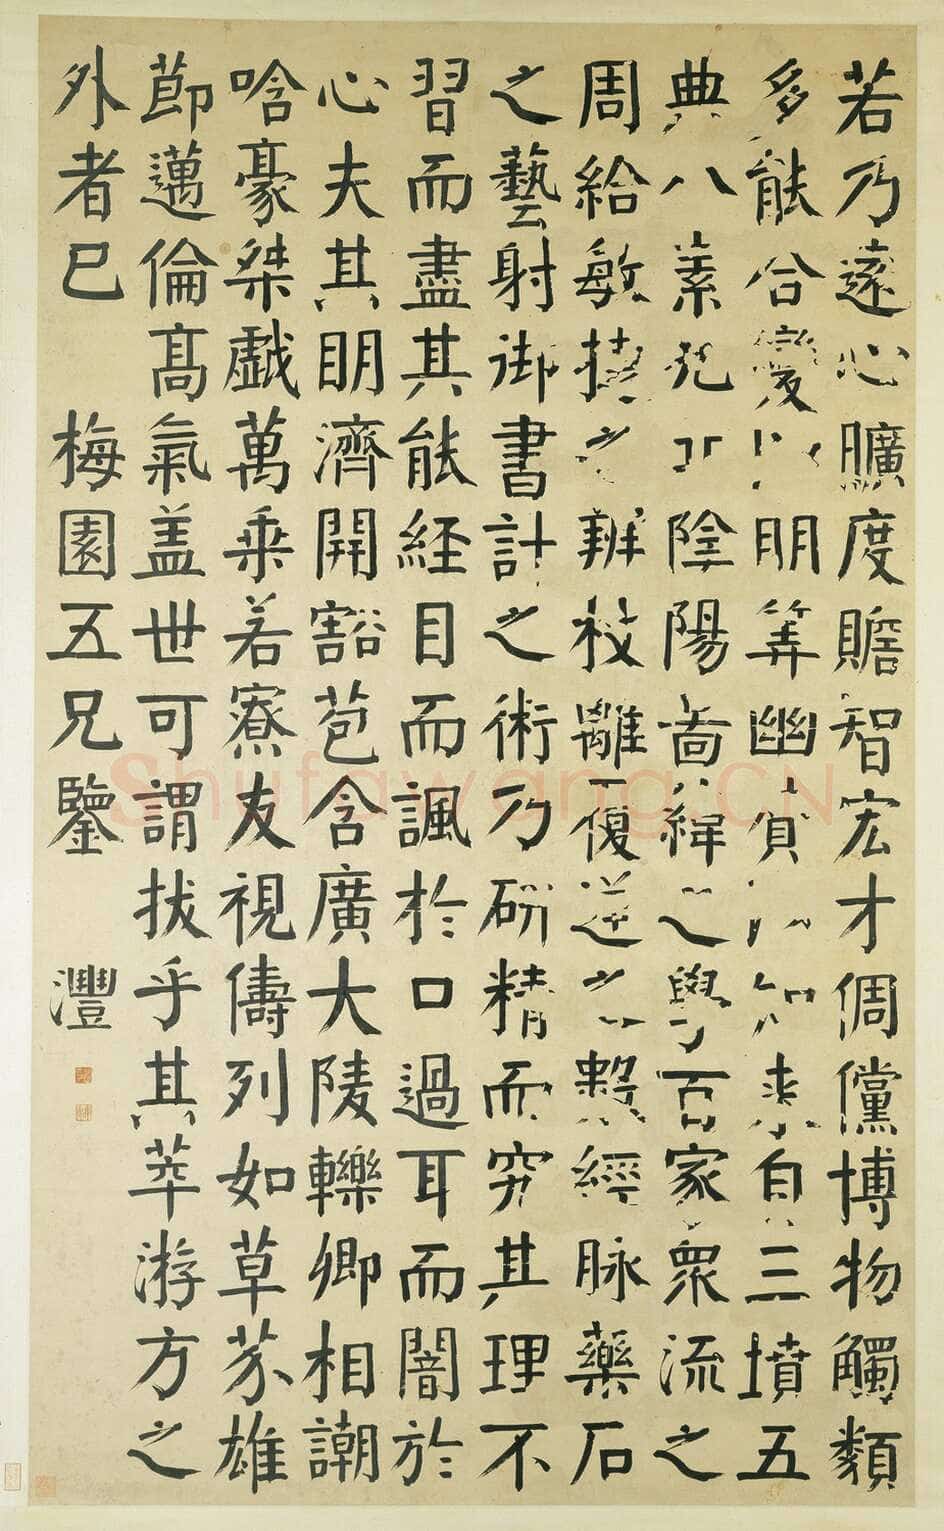 若乃遠心曠度贍智宏才倜儻博物觸類
多能合變以明筭幽贊以知來自三墳五
典八素九丘陰陽圖緯之學百家眾流之
周給敏捷之辨枝離覆逆之數經脉藥石
之藝射御書計之術乃研精而究其理不
習而盡其能経目而諷於口過耳而闇於
心夫其明濟開豁苞含廣大陵轢卿相謿
唅豪桀戯萬乗若寮友視儔列如草芥雄
節邁倫髙氣盖世可謂拔乎其萃游方之
外者已 梅園五兄鑒 灃
Shufawang.CN